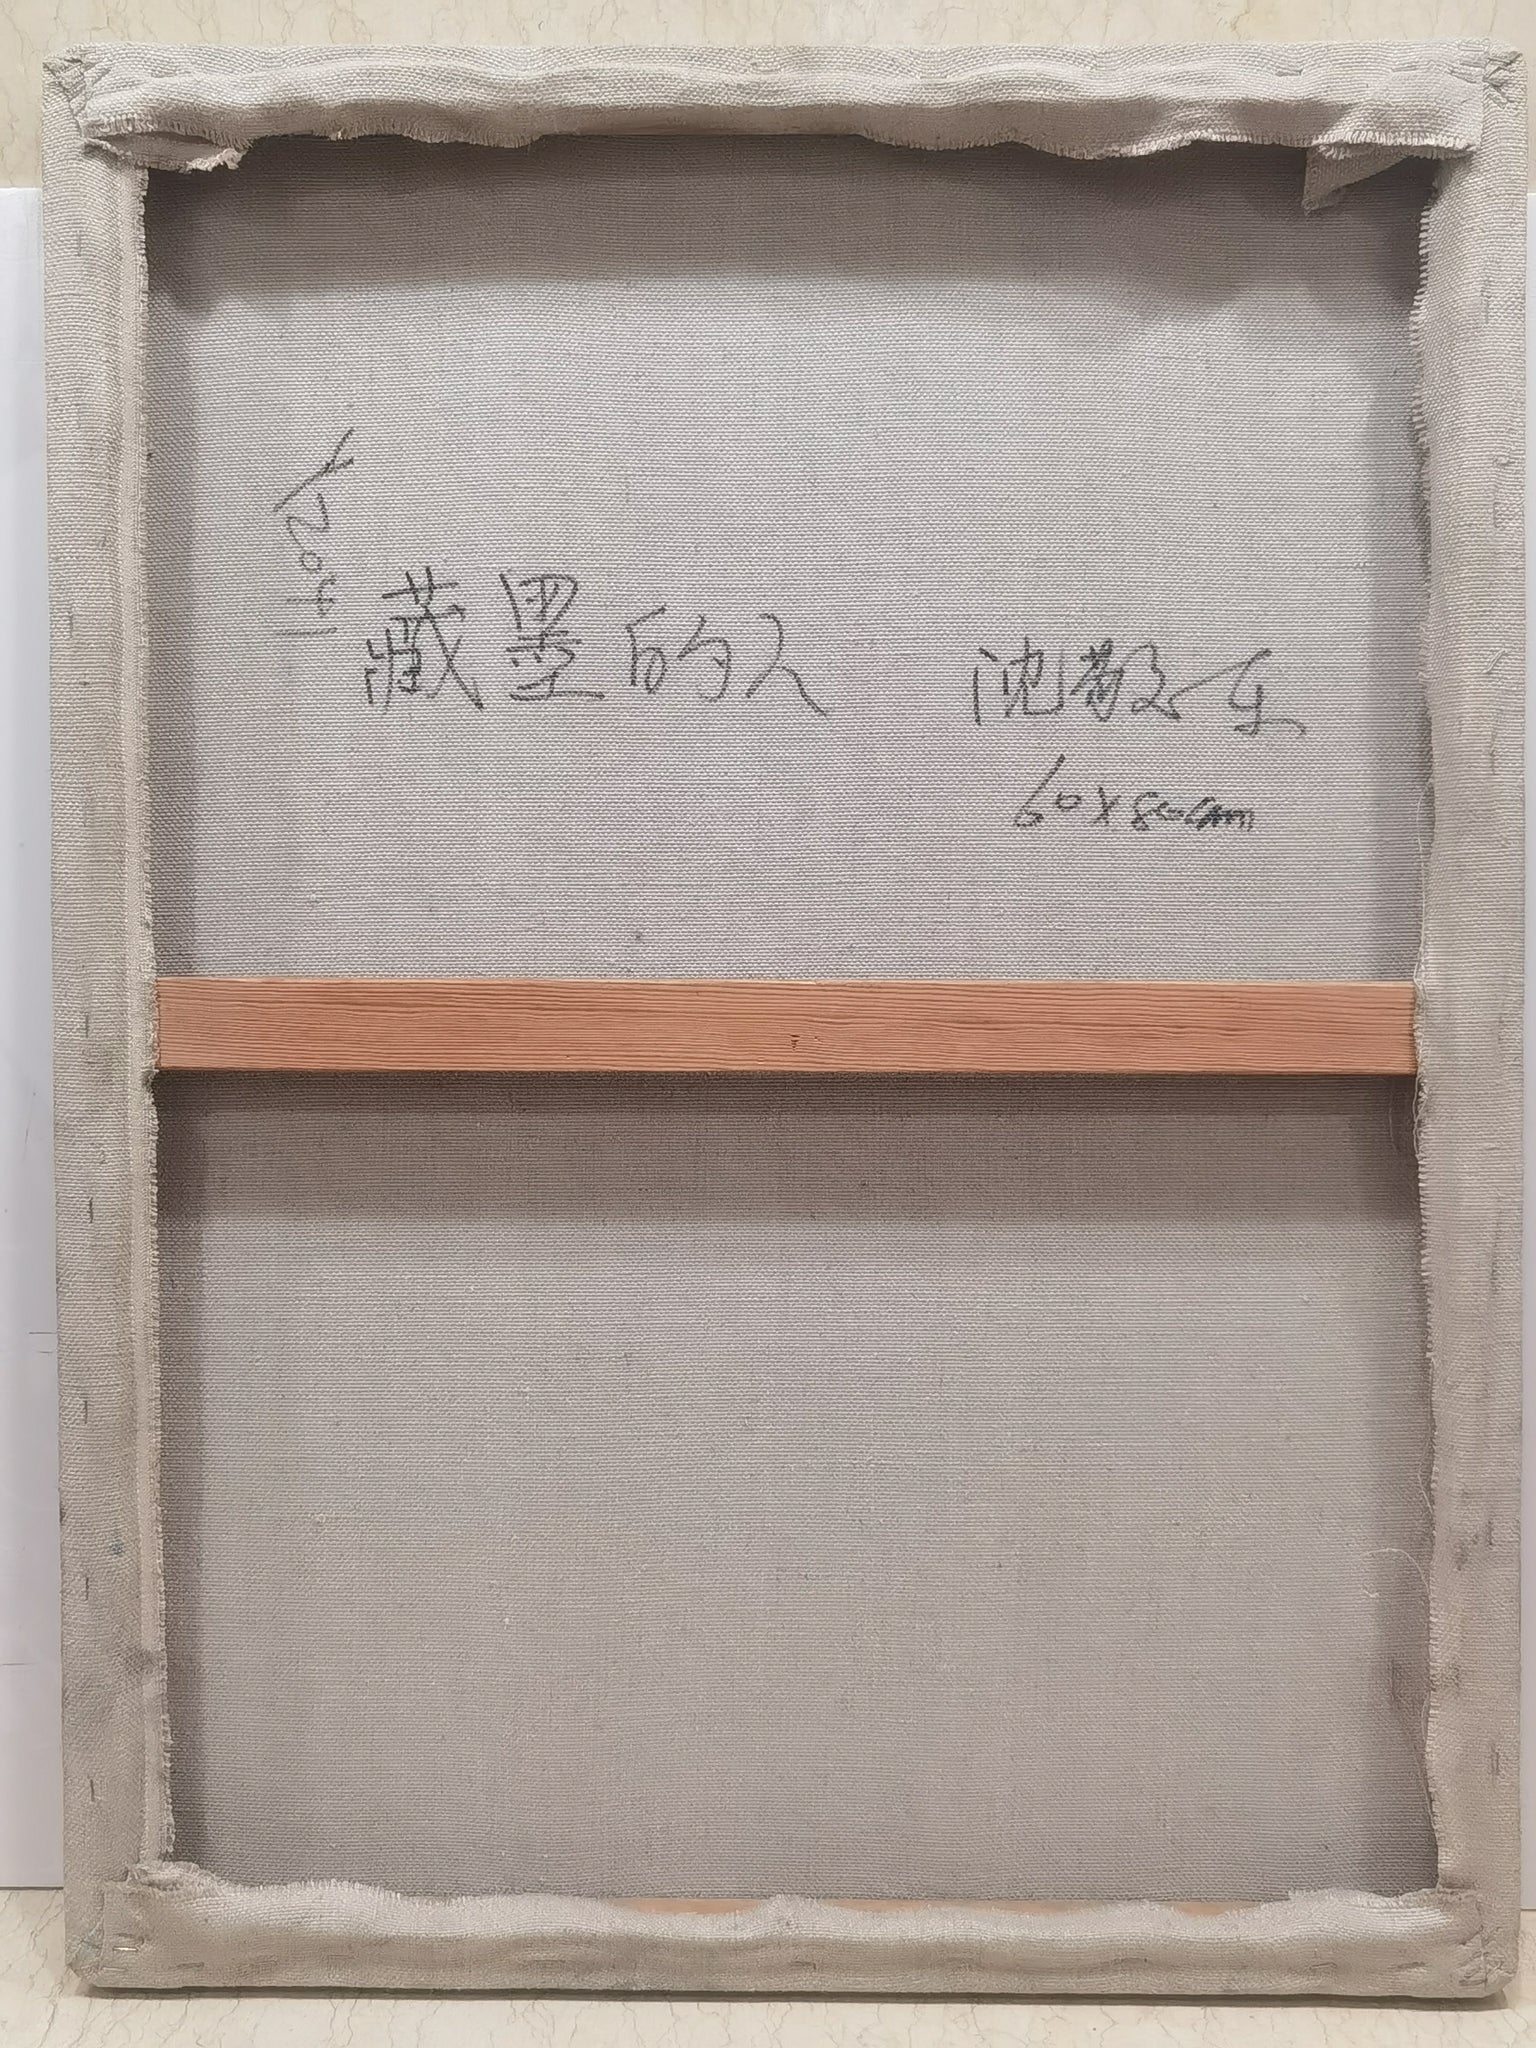 藏墨的人 沈敬东
60x80cm